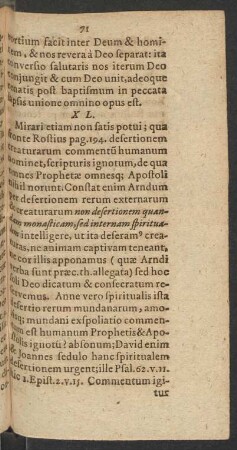 71
vortium facit inter Deum & homi-
nem, & nos revera à Deo separat: ita
conversio salutaris nos iterum Deo
conjungit & cum Deo unit, adeoque
renatis post baptismum in peccata
lapsis unione omnino opus est.
X L.
Mirari etiam non satis potui; qua
fronte Rostius pag. 194. desertionem
creaturarum commentũ humanum
nominet, scripturis ignotum, de quo
omnes Prophetæ omnesq; Apostoli
nihil norunt. Constat enim Arndum
per desertionem rerum externarum
& creaturarum non desertionem quan-
dam monasticam, sed internam spiritua-
lem intelligere, ut ita deseramꝰ crea-
turas, ne animam captivam teneant,
nec cor illis apponamus (quæ Arndi
verba sunt præc. th. allegata) sed hoc
soli Deo dicatum & consecratum re-
servemus. Anne vero spiritualis ista
desertio rerum mundanarum, amo-
risque mundani exspoliatio commen-
tum est humanum Prophetis & Apo-
stolis ignotũ? absonum; David enim
& Joannes sedulo hanc spiritualem
desertionem urgent; ille Psal. 62. v. 11.
hic 1. Epist. 2. v. 15. Commentum igi-
tur